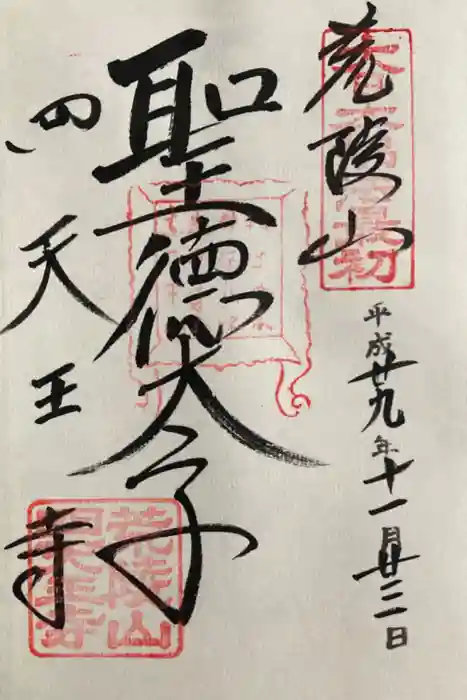 大日本佛法最初
荒陵山
平成廿九年十一月廿三日
聖徳太子
四天王寺
荒陵山
四天王寺